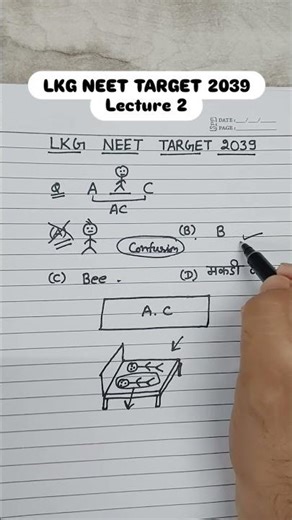 LKG NEET TARGET 2039
Lecture 2
DATE: __/__/__
PAGE:
LKG NEET TARGET 2039
Q A C
AC
(A) (B) B
Confusion
(C) Bee. (D) मकडी
A.C